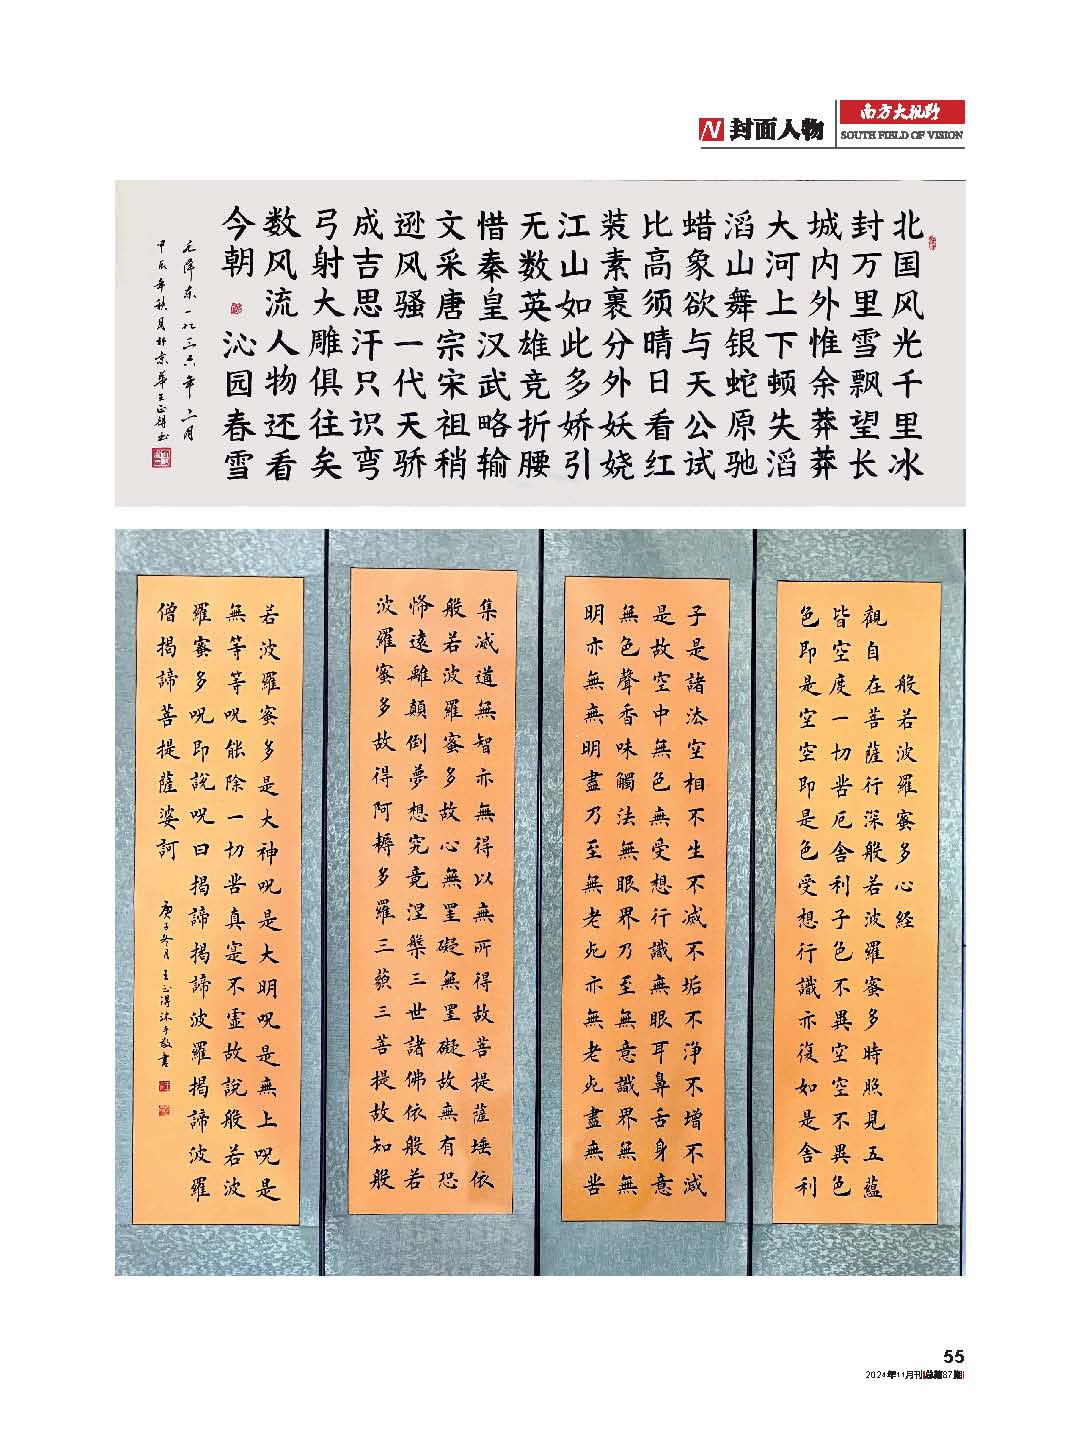 封面人物
南方大视野
SOUTH FIELD OF VISION
北国风光千里冰
封万里雪飘望长
城内外惟余莽莽
大河上下顿失滔
滔山舞银蛇原驰
蜡象欲与天公试
比高须晴日看红
装素裹分外妖娆
江山如此多娇引
无数英雄竞折腰
惜秦皇汉武略输
文采唐宗宋祖稍
逊风骚一代天骄
成吉思汗只识弯
弓射大雕俱往矣
数风流人物还看
今朝 沁园春雪
毛泽东一九三六年二月
甲辰年秋月于京华王正得书
般若波羅蜜多心经
觀自在菩薩行深般若波羅蜜多時照見五蘊
皆空度一切苦厄舍利子色不異空空不異色
色即是空空即是色受想行識亦復如是舍利
子是諸法空相不生不滅不垢不浄不增不減
是故空中無色無受想行識無眼耳鼻舌身意
無色聲香味觸法無眼界乃至無意識界無無
明亦無無明盡乃至無老死亦無老死盡無苦
集滅道無智亦無得以無所得故菩提薩埵依
般若波羅蜜多故心無罣礙無罣礙故無有恐
怖遠離顛倒夢想究竟涅槃三世諸佛依般若
波羅蜜多故得阿耨多羅三藐三菩提故知般
若波羅蜜多是大神呪是大明呪是無上呪是
無等等呪能除一切苦真寔不虛故說般若波
羅蜜多呪即說呪曰揭諦揭諦波羅揭諦波羅
僧揭諦菩提薩婆訶
庚子冬月王正得沐手敬書
55
2024年11月刊|总第87期|